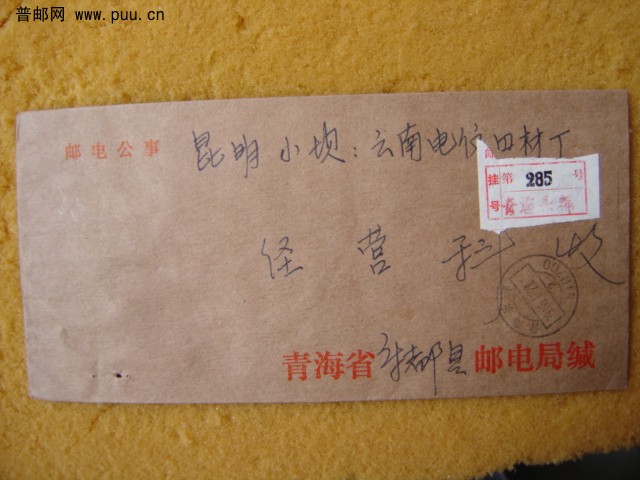 普邮网 www.puu.cn
邮电公事
昆明小坝：云南电信器材厂
挂第 285 号
号
经营科收
青海省 邮电局缄